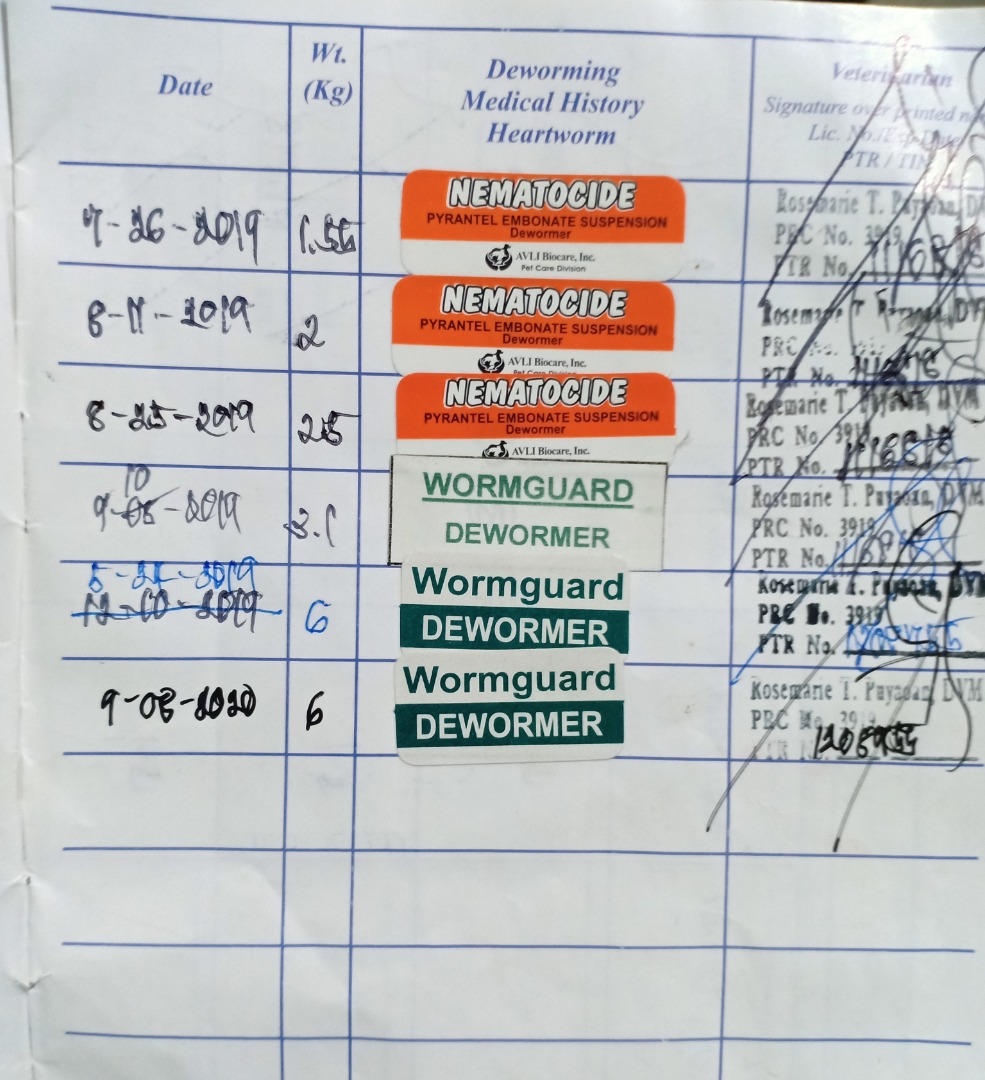 Date
Wt.
(Kg)
Deworming
Medical History
Heartworm
Veterinarian
Signature over printed
Lic. No./Exp. Date
PTR / TIN
7-26-2019
1.55
NEMATOCIDE
PYRANTEL EMBONATE SUSPENSION
Dewormer
AVLI Biocare, Inc.
Pet Care Division
Rosemarie T. Payaoan,
PRC No. 3919
PTR No.
8-11-2019
2
NEMATOCIDE
PYRANTEL EMBONATE SUSPENSION
Dewormer
AVLI Biocare, Inc.
Pet Care Division
Rosemarie T. Payaoan, DVM
PRC No.
PTR No.
8-25-2019
2.5
NEMATOCIDE
PYRANTEL EMBONATE SUSPENSION
Dewormer
AVLI Biocare, Inc.
Rosemarie T. Payaoan, DVM
PRC No. 3919
PTR No.
10
9-05-2019
3.1
WORMGUARD
DEWORMER
Rosemarie T. Payaoan, DVM
PRC No. 3919
PTR No.
12-10-2019
6
Wormguard
DEWORMER
Rosemarie T. Payaoan, DVM
PRC No. 3919
PTR No.
9-08-2020
6
Wormguard
DEWORMER
Rosemarie T. Payaoan, DVM
PRC No. 3919